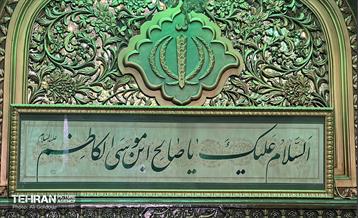 السلام علیک یا صالح ابن موسی الکاظم
TEHRAN PICTURE AGENCY